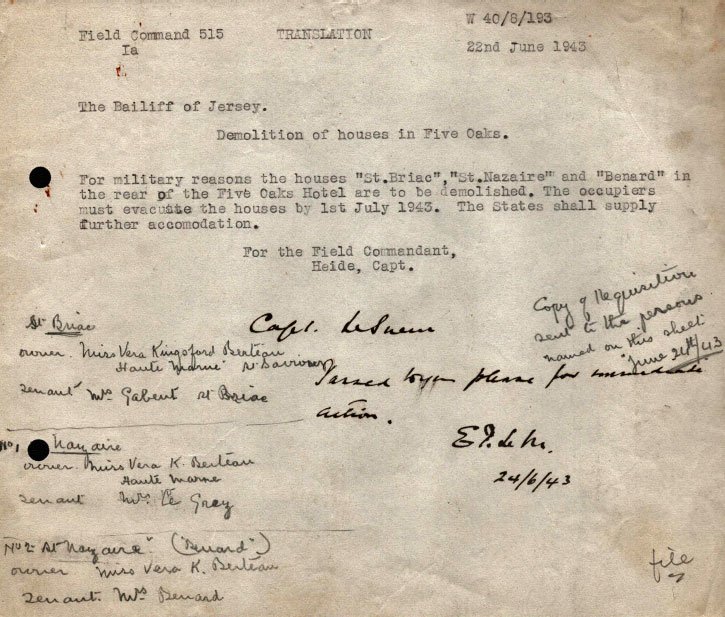 W 40/6/193
Field Command 515
TRANSLATION
Ia
22nd June 1943
The Bailiff of Jersey.
Demolition of houses in Five Oaks.
For military reasons the houses "St.Briac","St.Nazaire" and "Benard" in
the rear of the Five Oaks Hotel are to be demolished. The occupiers
must evacuate the houses by 1st July 1943. The States shall supply
further accomodation.
For the Field Commandant,
Heide, Capt.
Copy of Requisition
sent to the persons
named on this sheet
June 24th/43
Capt. Le Sueur
Passed to you please for immediate
action.
24/6/43
St Briac
owner. Miss Vera Kingsford Berteau
"Haute Marne" St Saviours
tenant Mrs Gabent St Briac
No 1 Nazaire
owner. Miss Vera K. Berteau
Haute Marne
tenant Mrs Le Grey
No 2 St Nazaire" ("Benard")
owner Miss Vera K. Berteau
tenant. Mrs Benard
file